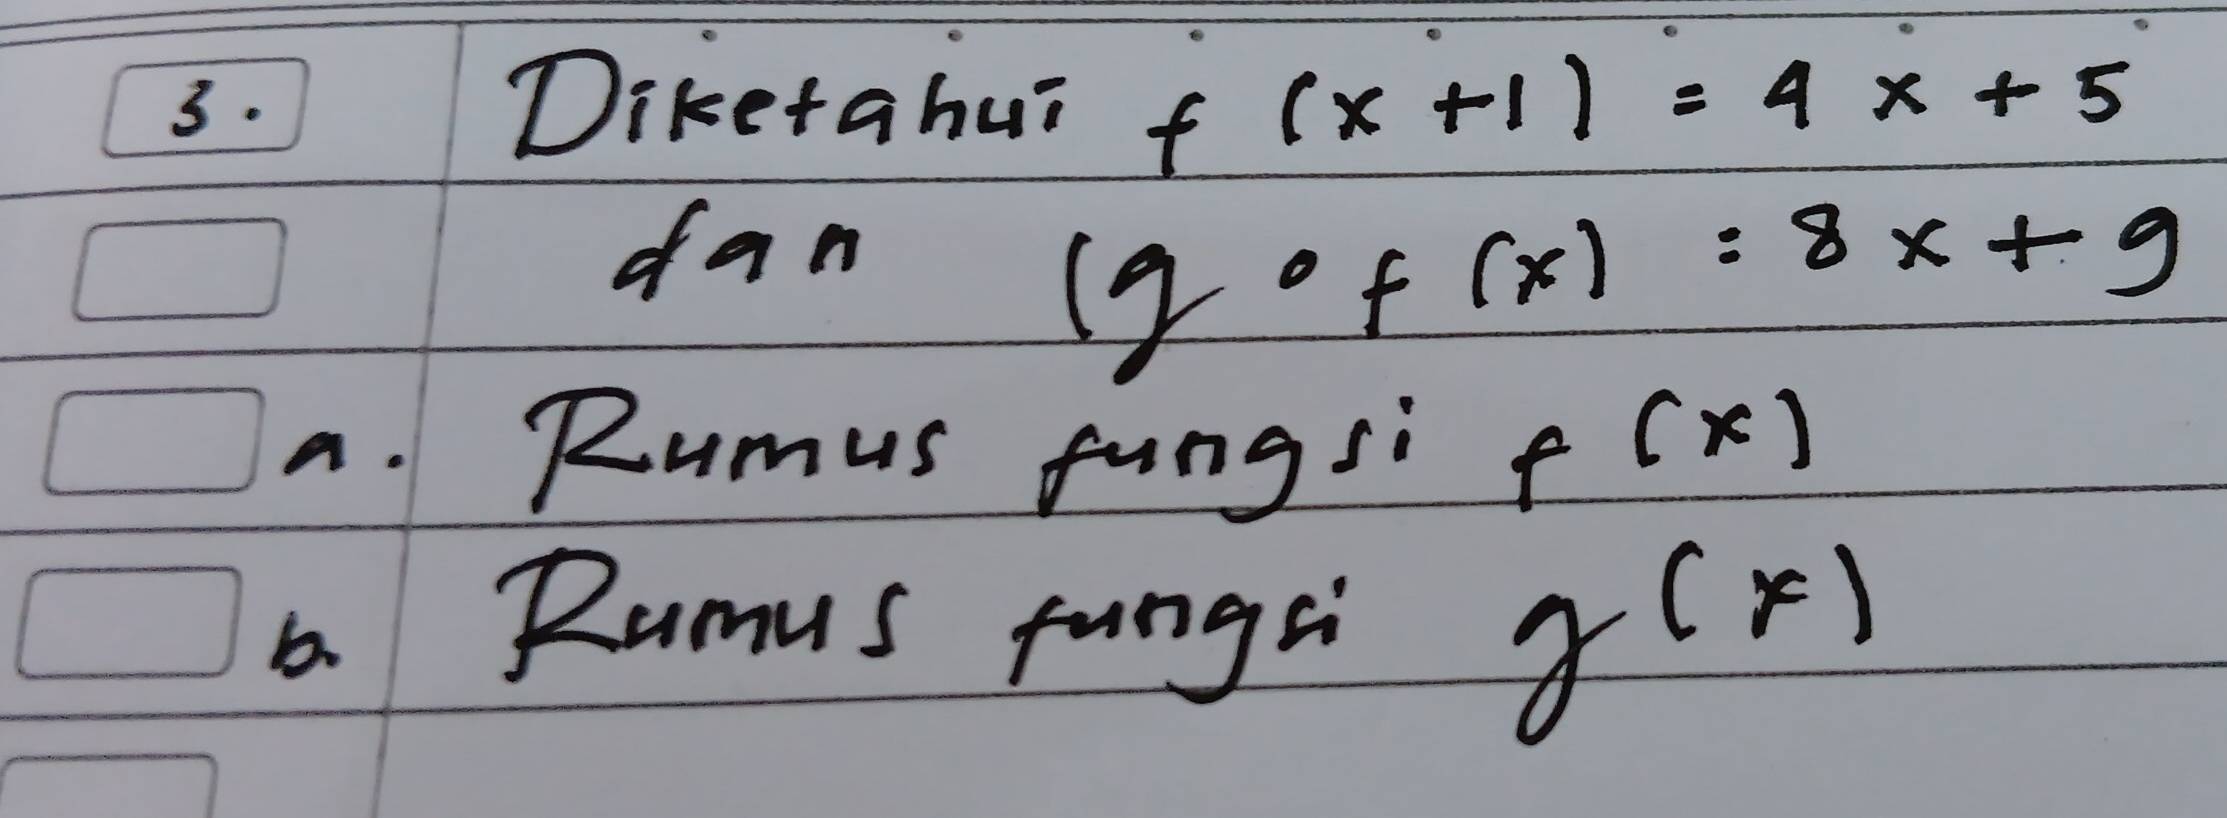 3. Diketahui f (x + 1) = 4 x + 5
dan (g o f (x) = 8 x + 9
a. Rumus fungsi f (x)
b. Rumus fungsi g (x)